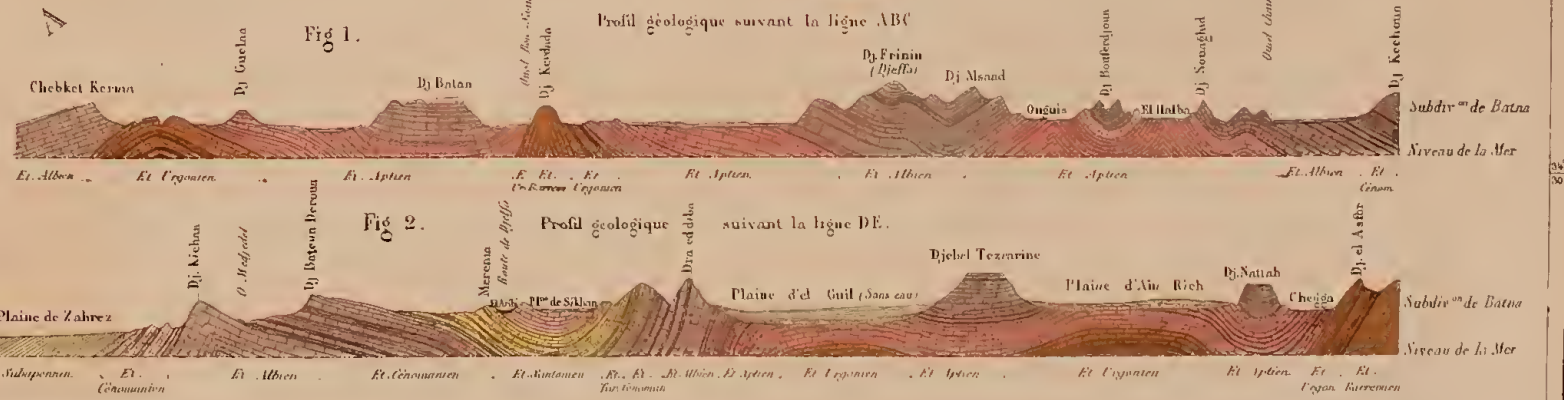 A
Fig 1.
Profil géologique suivant la ligne ABC
Chebket Kerma
Dj Guelna
Dj Batan
Dj Kerdada
Dj. Frinin
(Djeffa)
Dj Msaad
Ouguis
Dj Bouferdjoun
El Halba
Dj Nouaghid
Dj Kechoun
Subdiv.on de Batna
Niveau de la Mer
Et. Albien
Et Urgonien
Et. Aptien
Et. Et.
Urgonien
Et. Aptien.
Et. Albien
Et Aptien.
Et. Albien Et
Cénom.
Fig 2.
Profil géologique suivant la ligne DE.
Plaine de Zahrez
Dj. Kiehan
O Medjedel
Merema
Route de Djelfa
Dra ed diba
Plaine d'el Guil (Sans eau)
Djebel Tezrarine
Plaine d'Aïn Rich
Dj. Nattah
Chegga
Dj. el Asfhr
Subdiv.on de Batna
Niveau de la Mer
Subapennin. Et.
Cénomanien
Et Albien
Et. Cénomanien
Et. Santonien
Et. Et. Et. Albien. Et Aptien.
Et Urgonien
Et Aptien
Et Urgonien
Et Aptien. Et. Et.
Urgon. Barremien
34
30